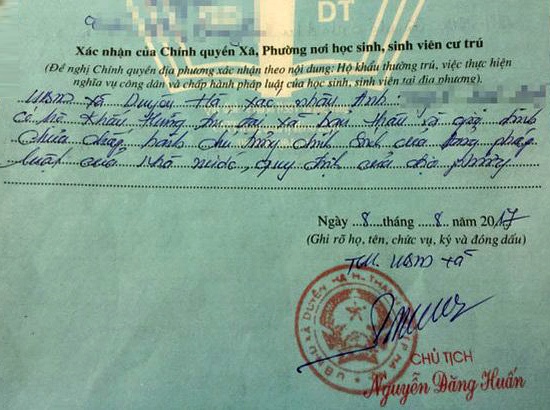 DT
Xác nhận của Chính quyền Xã, Phường nơi học sinh, sinh viên cư trú
(Đề nghị Chính quyền địa phương xác nhận theo nội dung: Hộ khẩu thường trú, việc thực hiện
nghĩa vụ công dân và chấp hành pháp luật của học sinh, sinh viên tại địa phương).
UBND xã Duyên Hà xác nhận Anh:
Có hộ khẩu thường trú tại xã bản thân và gia đình
chưa chấp hành chủ trương chính sách của Đảng pháp
luật của Nhà nước, quy định của địa phương
Ngày 8 tháng 8 năm 2017
(Ghi rõ họ, tên, chức vụ, ký và đóng dấu)
TM. UBND xã
CHỦ TỊCH
Nguyễn Đăng Huấn